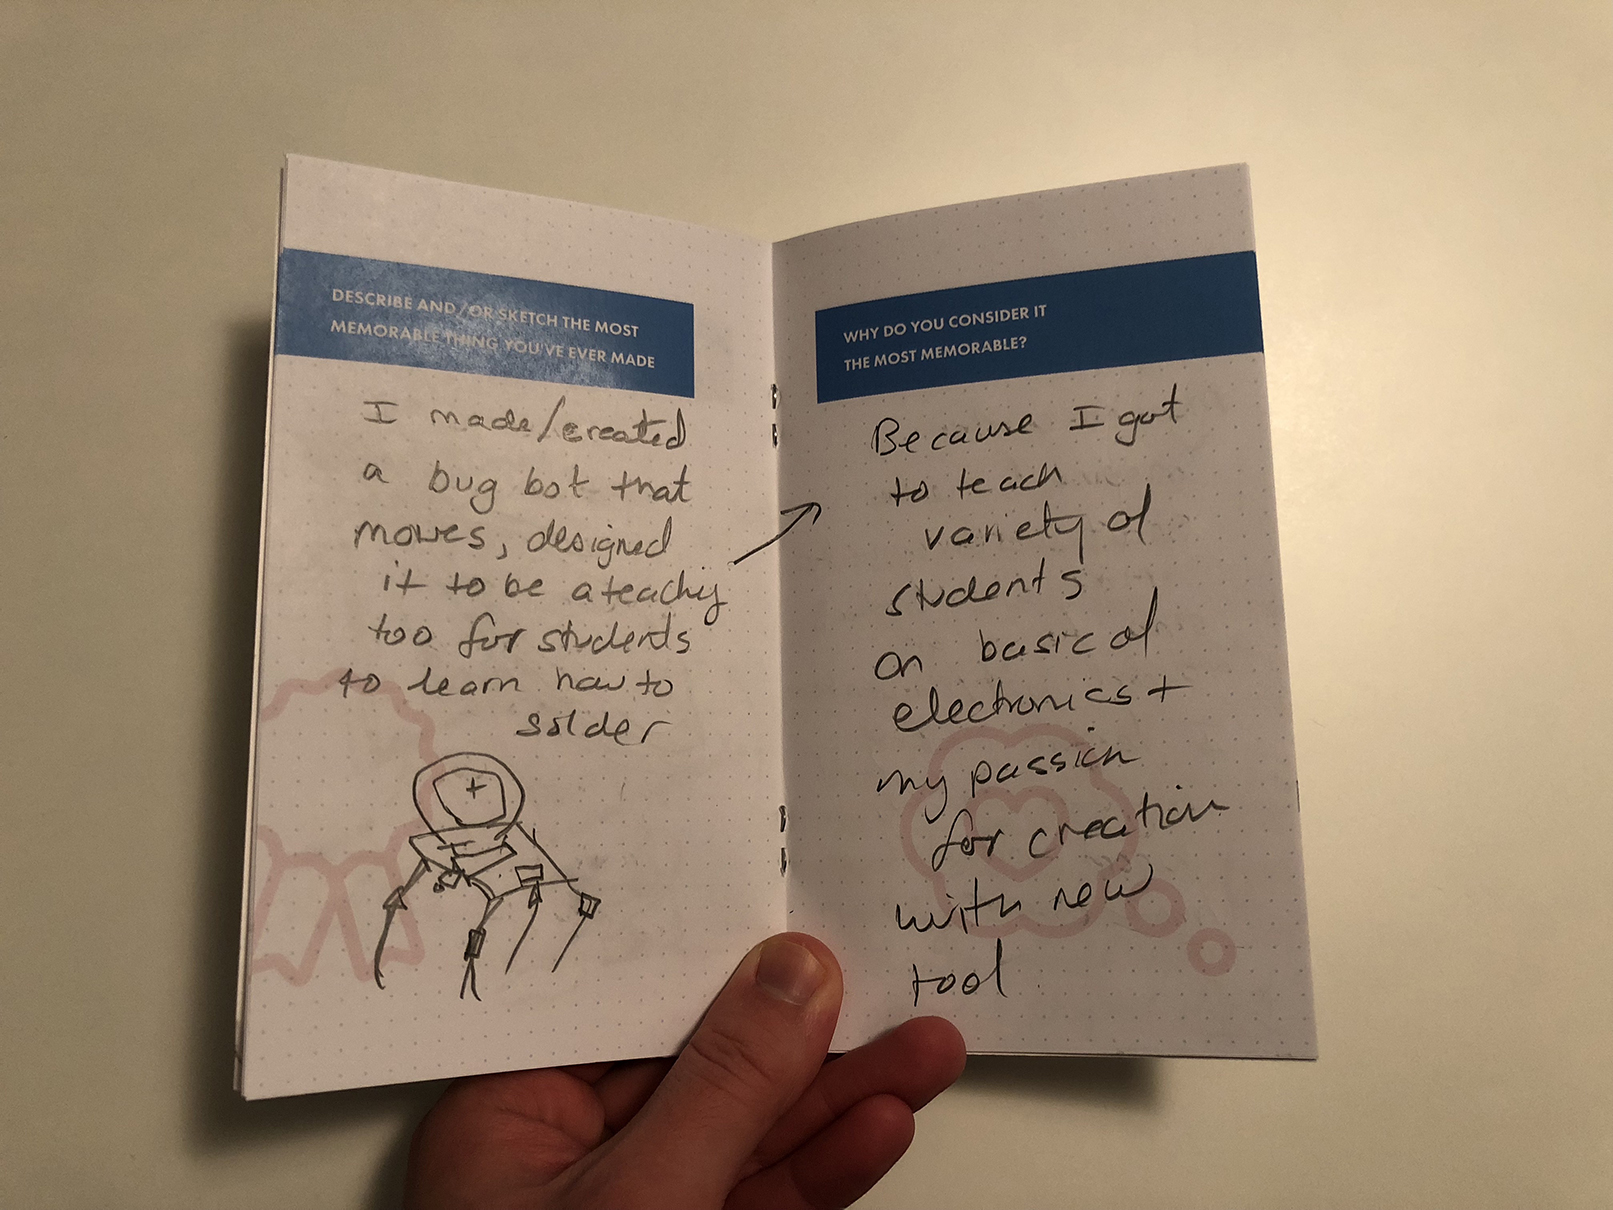 DESCRIBE AND/OR SKETCH THE MOST
MEMORABLE THING YOU'VE EVER MADE
I made/created
a bug bot that
moves, designed
it to be a teachig
too for students
to learn how to
solder
WHY DO YOU CONSIDER IT
THE MOST MEMORABLE?
Because I got
to teach
variety of
students
on basic of
electronics +
my passion
for creation
with new
tool